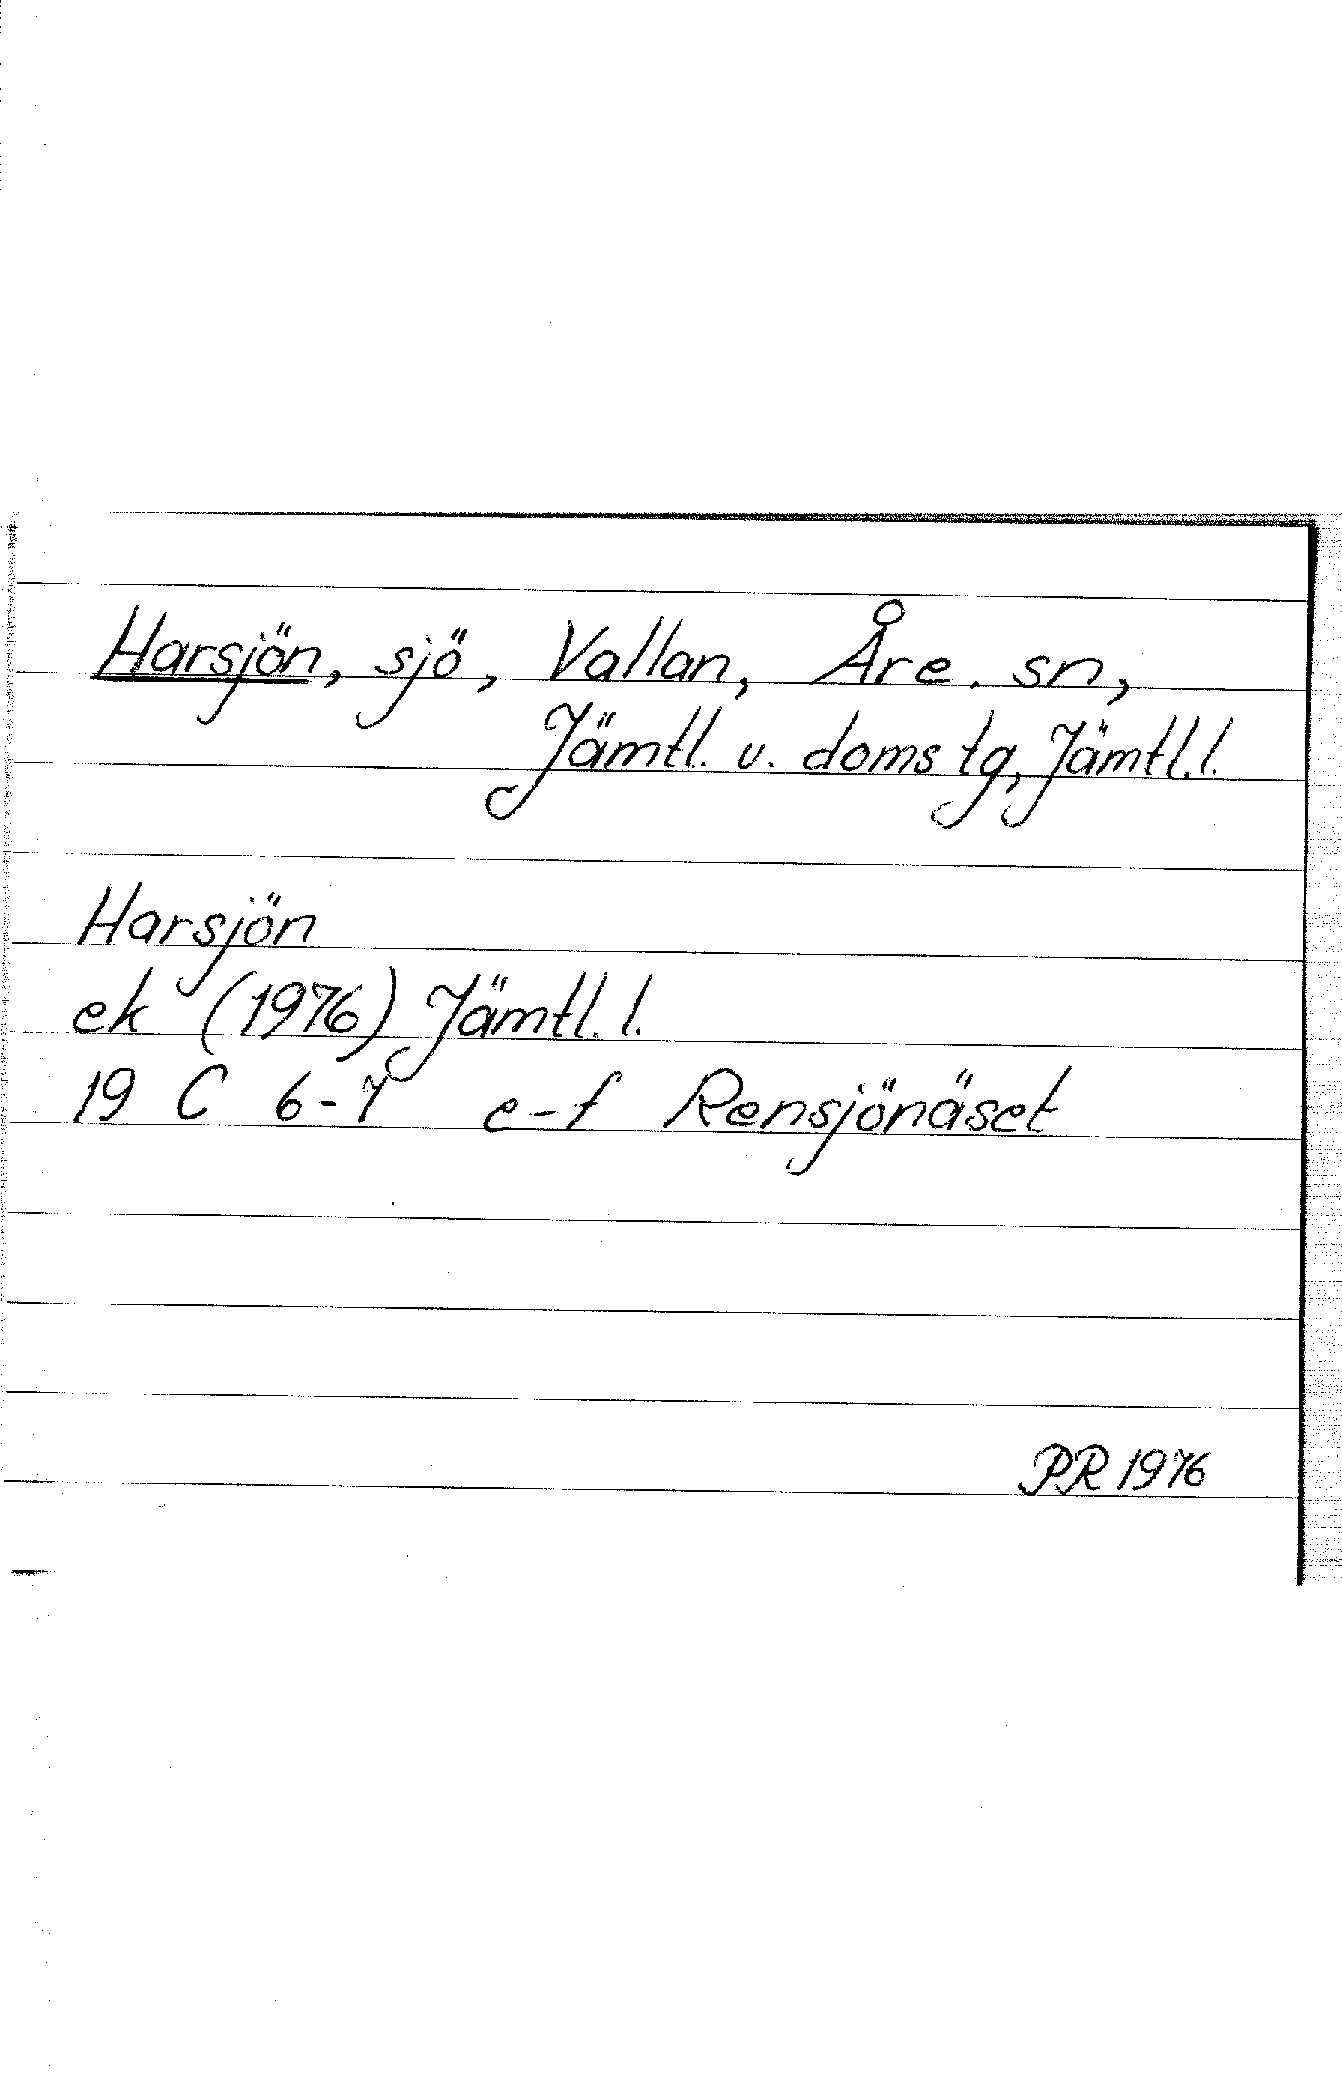 Harsjön, sjö, Vallan, Åre. sn,
Jämtl. v. doms tg, Jämtl.l.
Harsjön
ek (1976) Jämtl. l.
19 C 6-7 e-f Rensjönäset
PR 1976